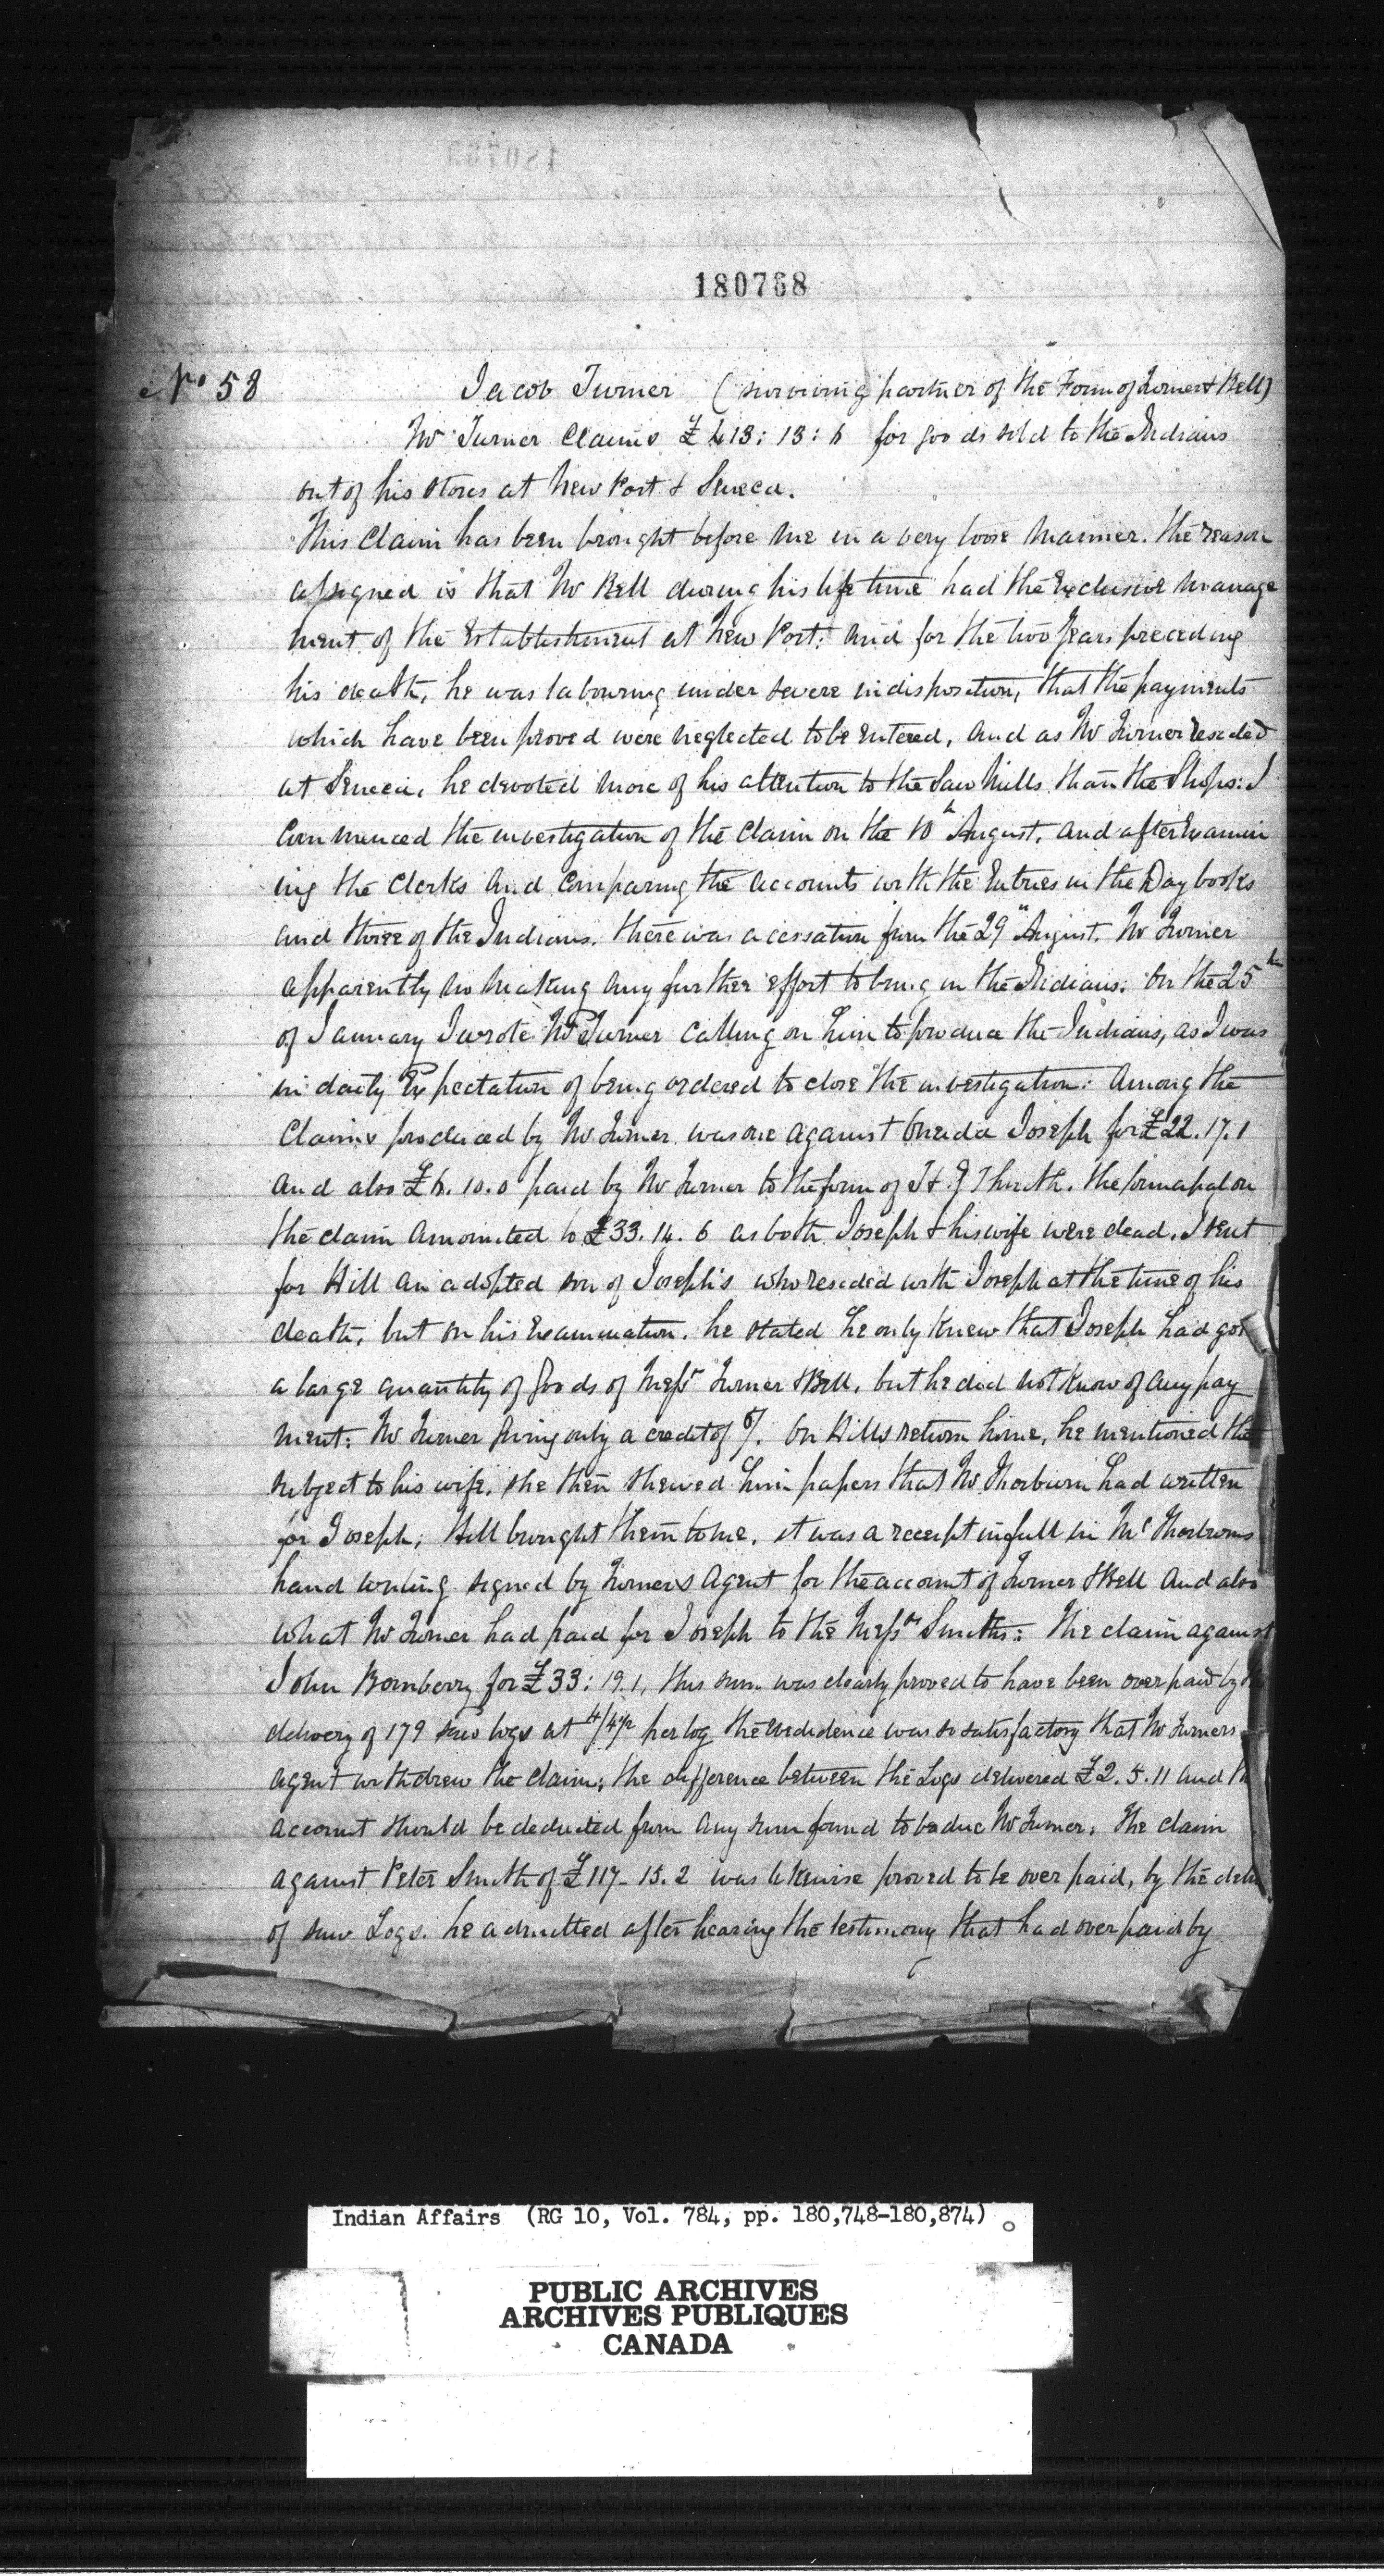 180768
No 58
Jacob Turner (surviving partner of the Form of Turner & Bell)
Mr Turner Claims £413:13:6 for goods sold to the Indians
out of his stores at New Port & Seneca.
This Claim has been brought before me in a very loose manner. the reason
assigned is that Mr Bell during his life time had the Exclusive manage
ment of the Establishment at New Port: and for the two years preceding
his death, he was labouring under severe indisposition, that the payments
which have been proved were neglected to be Entered, and as Mr Turner resided
at Seneca, he devoted more of his attention to the Saw Mills than the Shops: I
Commenced the investigation of the Claim on the 10th August. and after Examin
ing the Clerks and Comparing the accounts with the Entries in the Day books
and three of the Indians. there was a cessation from the 29" August. Mr Turner
apparently no making any further effort to bring in the Indians: On the 25th
of January I wrote Mr Turner calling on him to produce the Indians, as I was
in daily Expectation of being ordered to close the investigation: Among the
Claims produced by Mr Turner was one against Oneida Joseph for £22.17.1
and also £6.10.0 paid by Mr Turner to the firm of . the principal on
the claim amounted to £33.14.6 as both Joseph & his wife were dead. I sent
for Hill an adopted son of Joseph's who resided with Joseph at the time of his
death, but on his Examination. he stated he only Knew that Joseph had got
a large quantity of Goods of Messrs Turner & Bell, but he did not Know of any pay
ment: Mr Turner giving only a credit of . On Hills return home, he mentioned the
subject to his wife. she then shewed him papers that Mr Thorburn had written
for Joseph; Hill brought them to me. it was a receipt in full in Mr Thorburns
hand writing signed by Turners Agent for the account of Turner & Bell and also
what Mr Turner had paid for Joseph to the Messrs Smiths: The claim against
John Bomberry for £33:19.1, this sum was clearly proved to have been over paid by
delivery of 179 saw logs at 4/4½ per log the evidence was so satisfactory that Mr Turners
agent withdrew the claim; the difference between the Logs delivered £2.5.11 and
account should be deducted from any sum found to be due Mr Turner: The claim
against Peter Smith of £117-15.2 was likewise proved to be over paid, by the
of saw Logs. he admitted after hearing the testimony that had over paid by
Indian Affairs (RG 10, Vol. 784, pp. 180,748-180,874)
PUBLIC ARCHIVES
ARCHIVES PUBLIQUES
CANADA